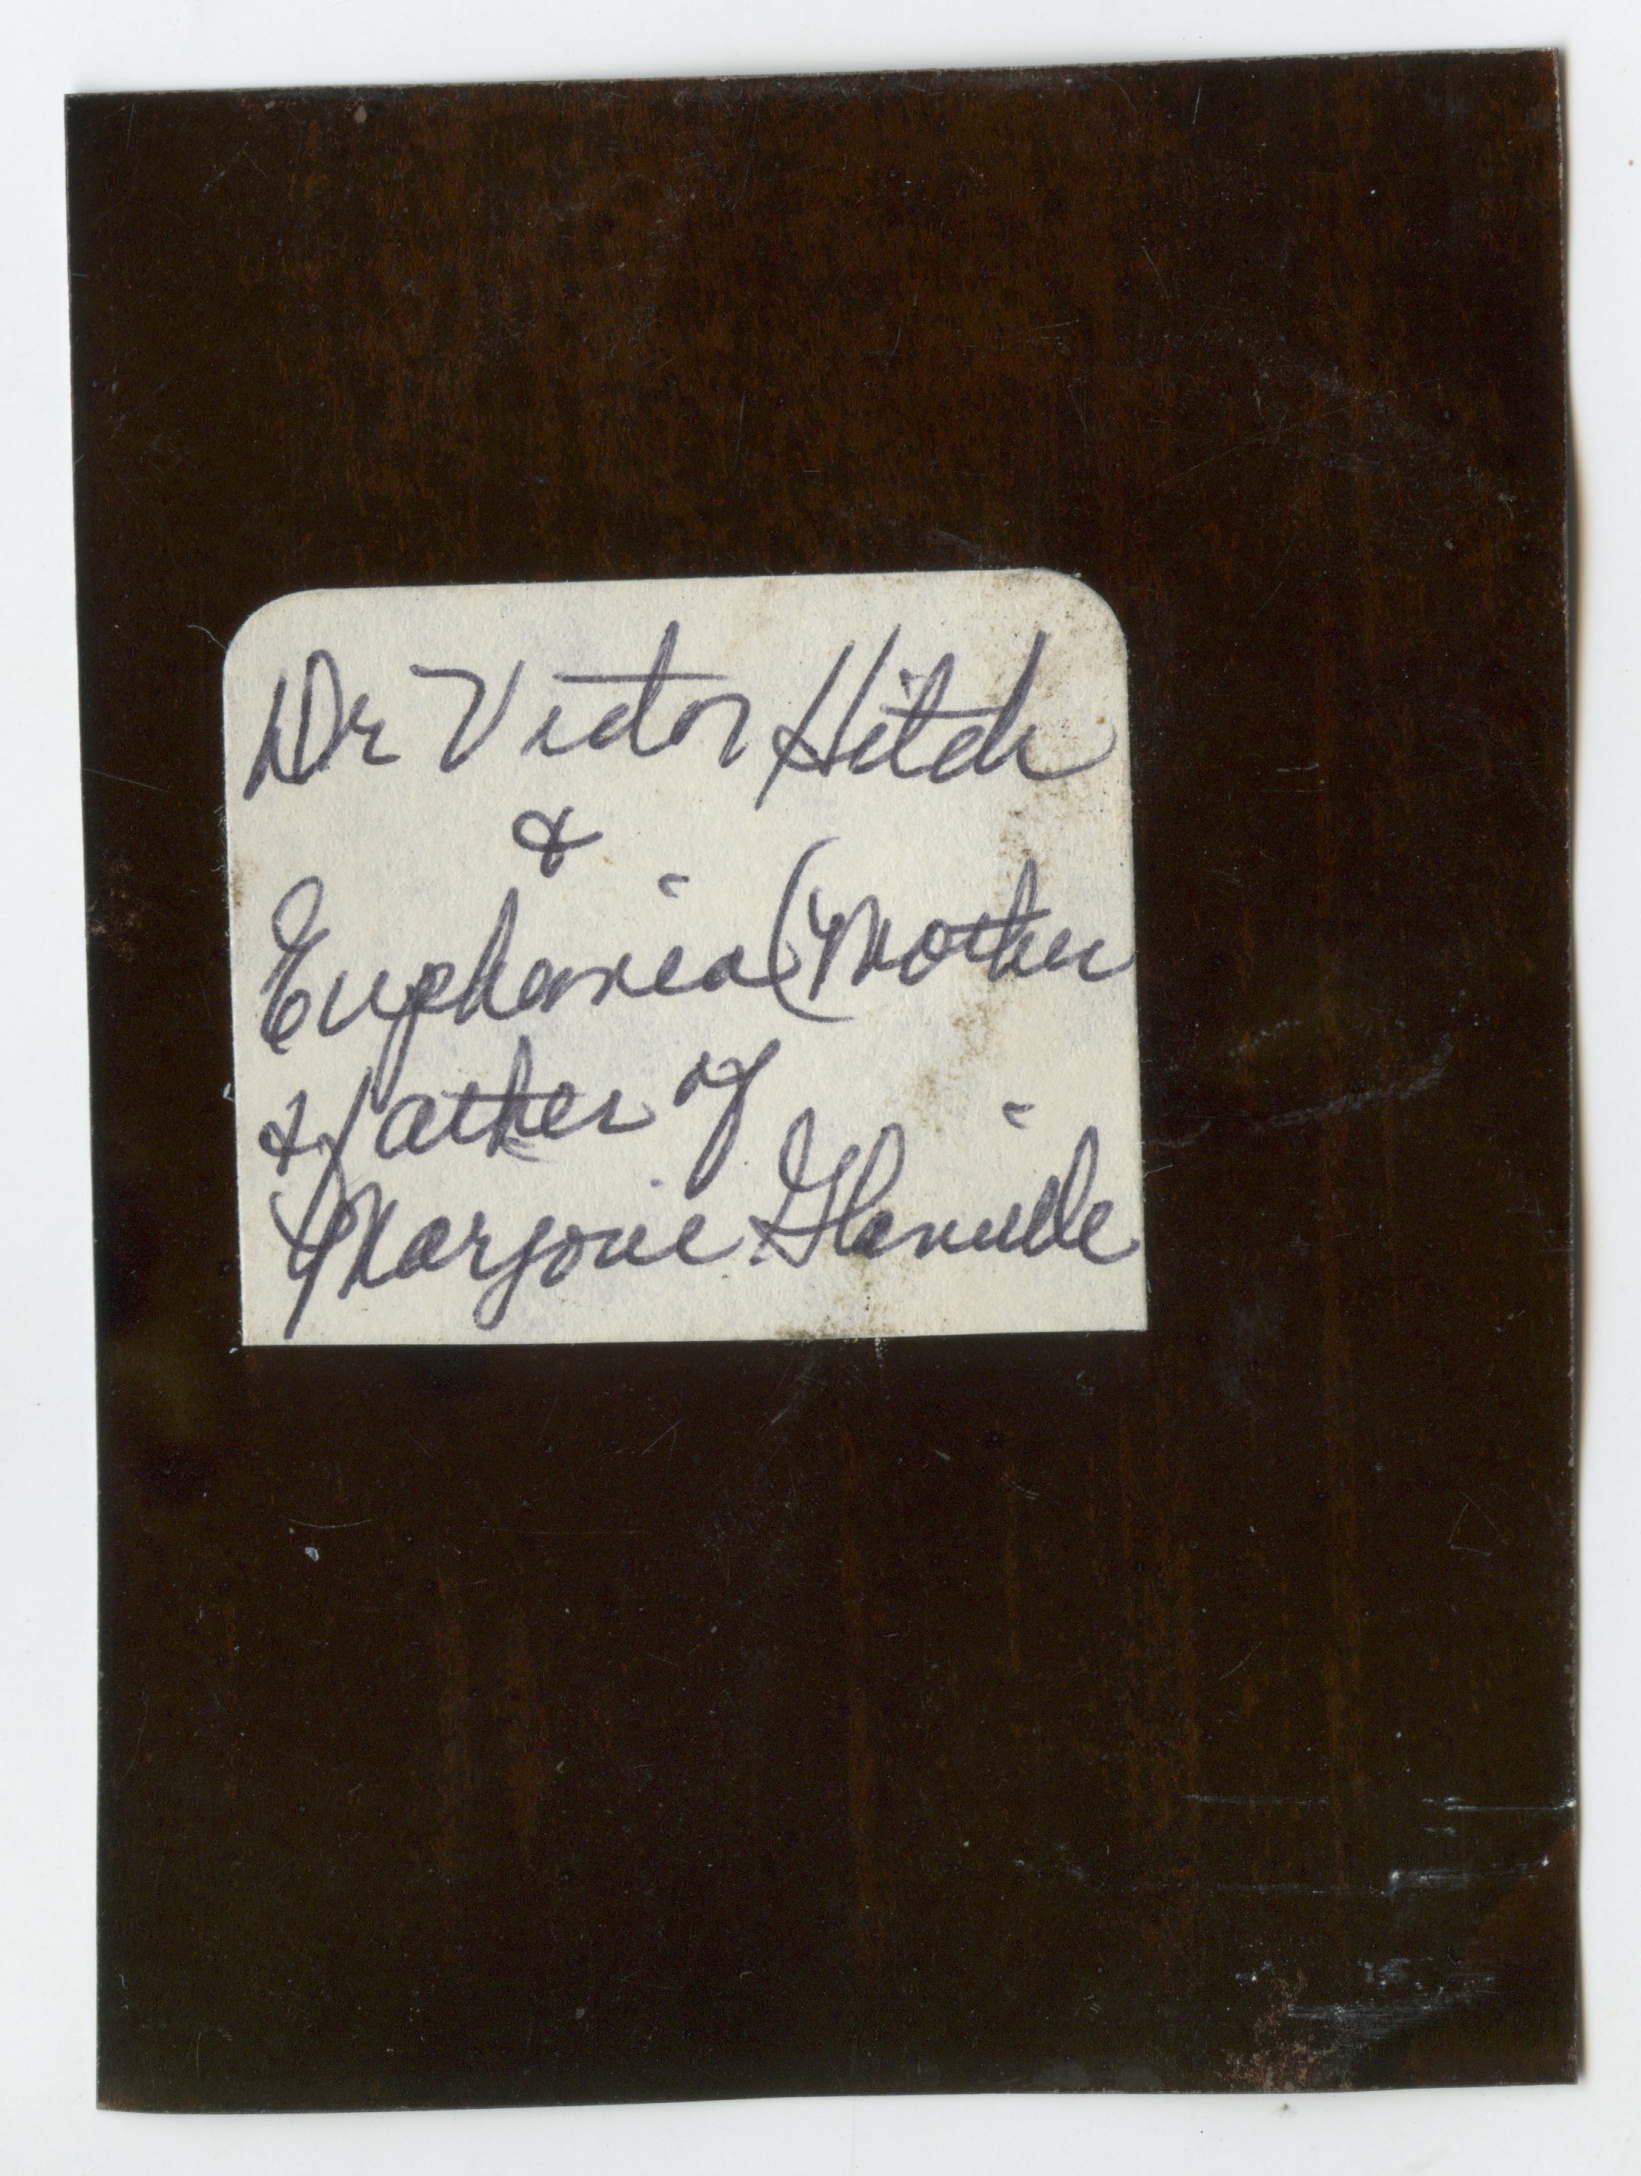 Dr Victor Hitch
&
Euphemia (Mother
& father of
Marjorie Glanville